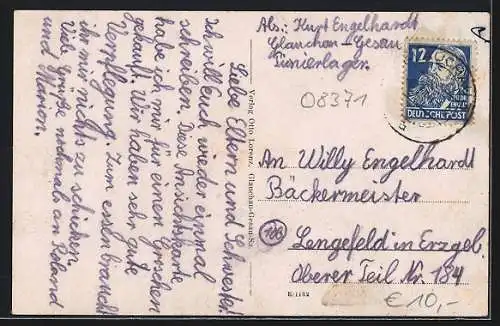 Liebe Eltern und Schwester!
Ich will Euch wieder einmal
schreiben. Diese Ansichtskarte
habe ich mir für einen Groschen
gekauft. Wir haben sehr gute
Verpflegung. Zum essen braucht
ihr mir nichts zu schicken.
Viele Grüße nochmals an Roland
und Marion.
Verlag Otto Lorenz, Glauchau-Gesau/Sa.
Abs.: Kurt Engelhardt
Glauchau-Gesau
Pionierlager.
08371
12
DEUTSCHE POST
An Willy Engelhardt
Bäckermeister
(10b)
Lengefeld in Erzgeb.
Oberer Teil Nr. 184
€ 10,-